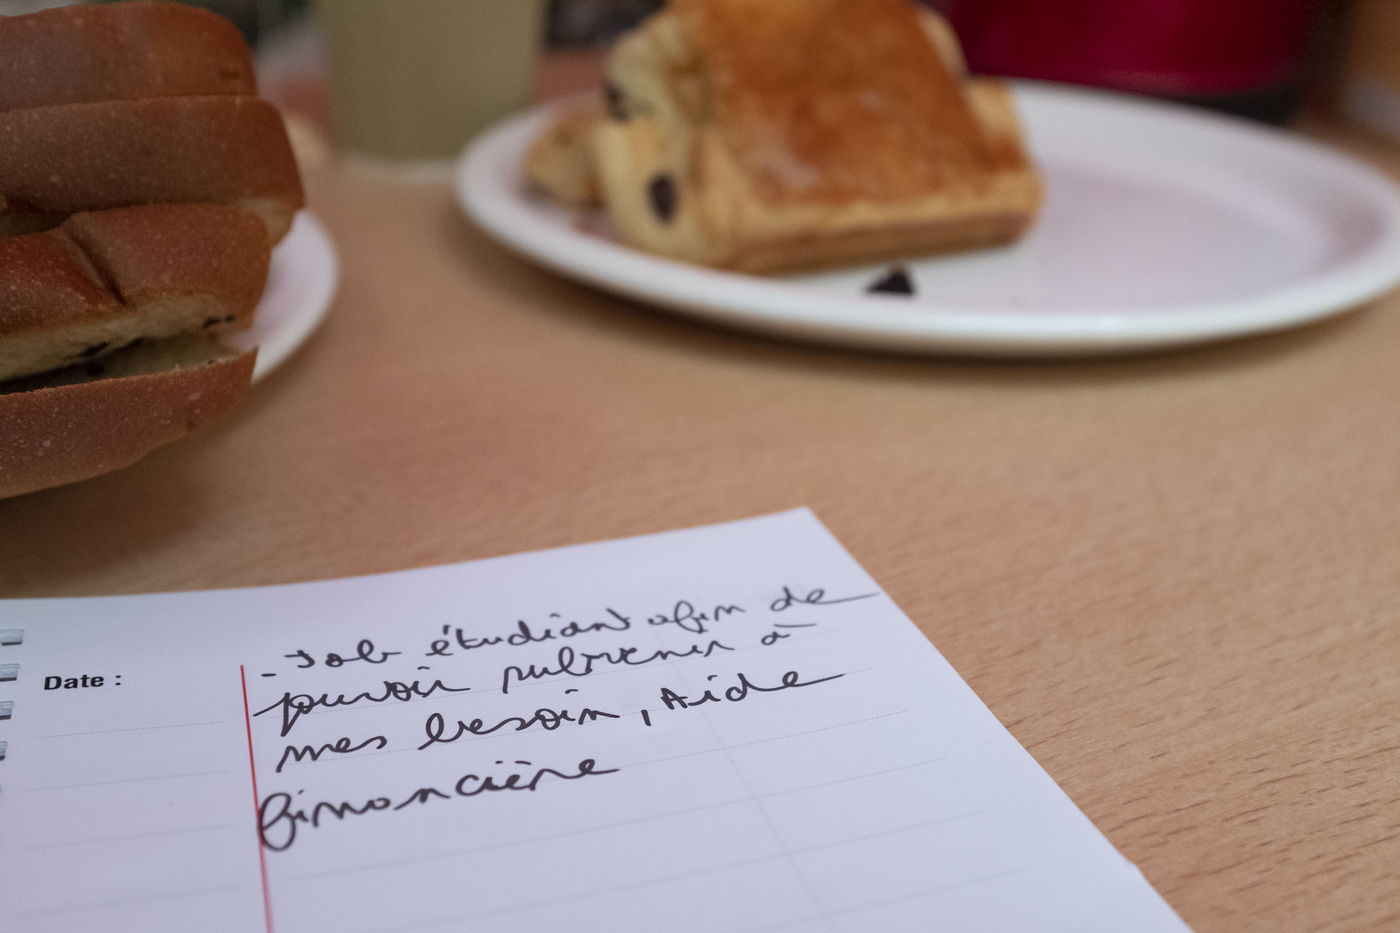 Date :
- Job étudiant afin de
pouvoir subvenir à
mes besoin, Aide
financière